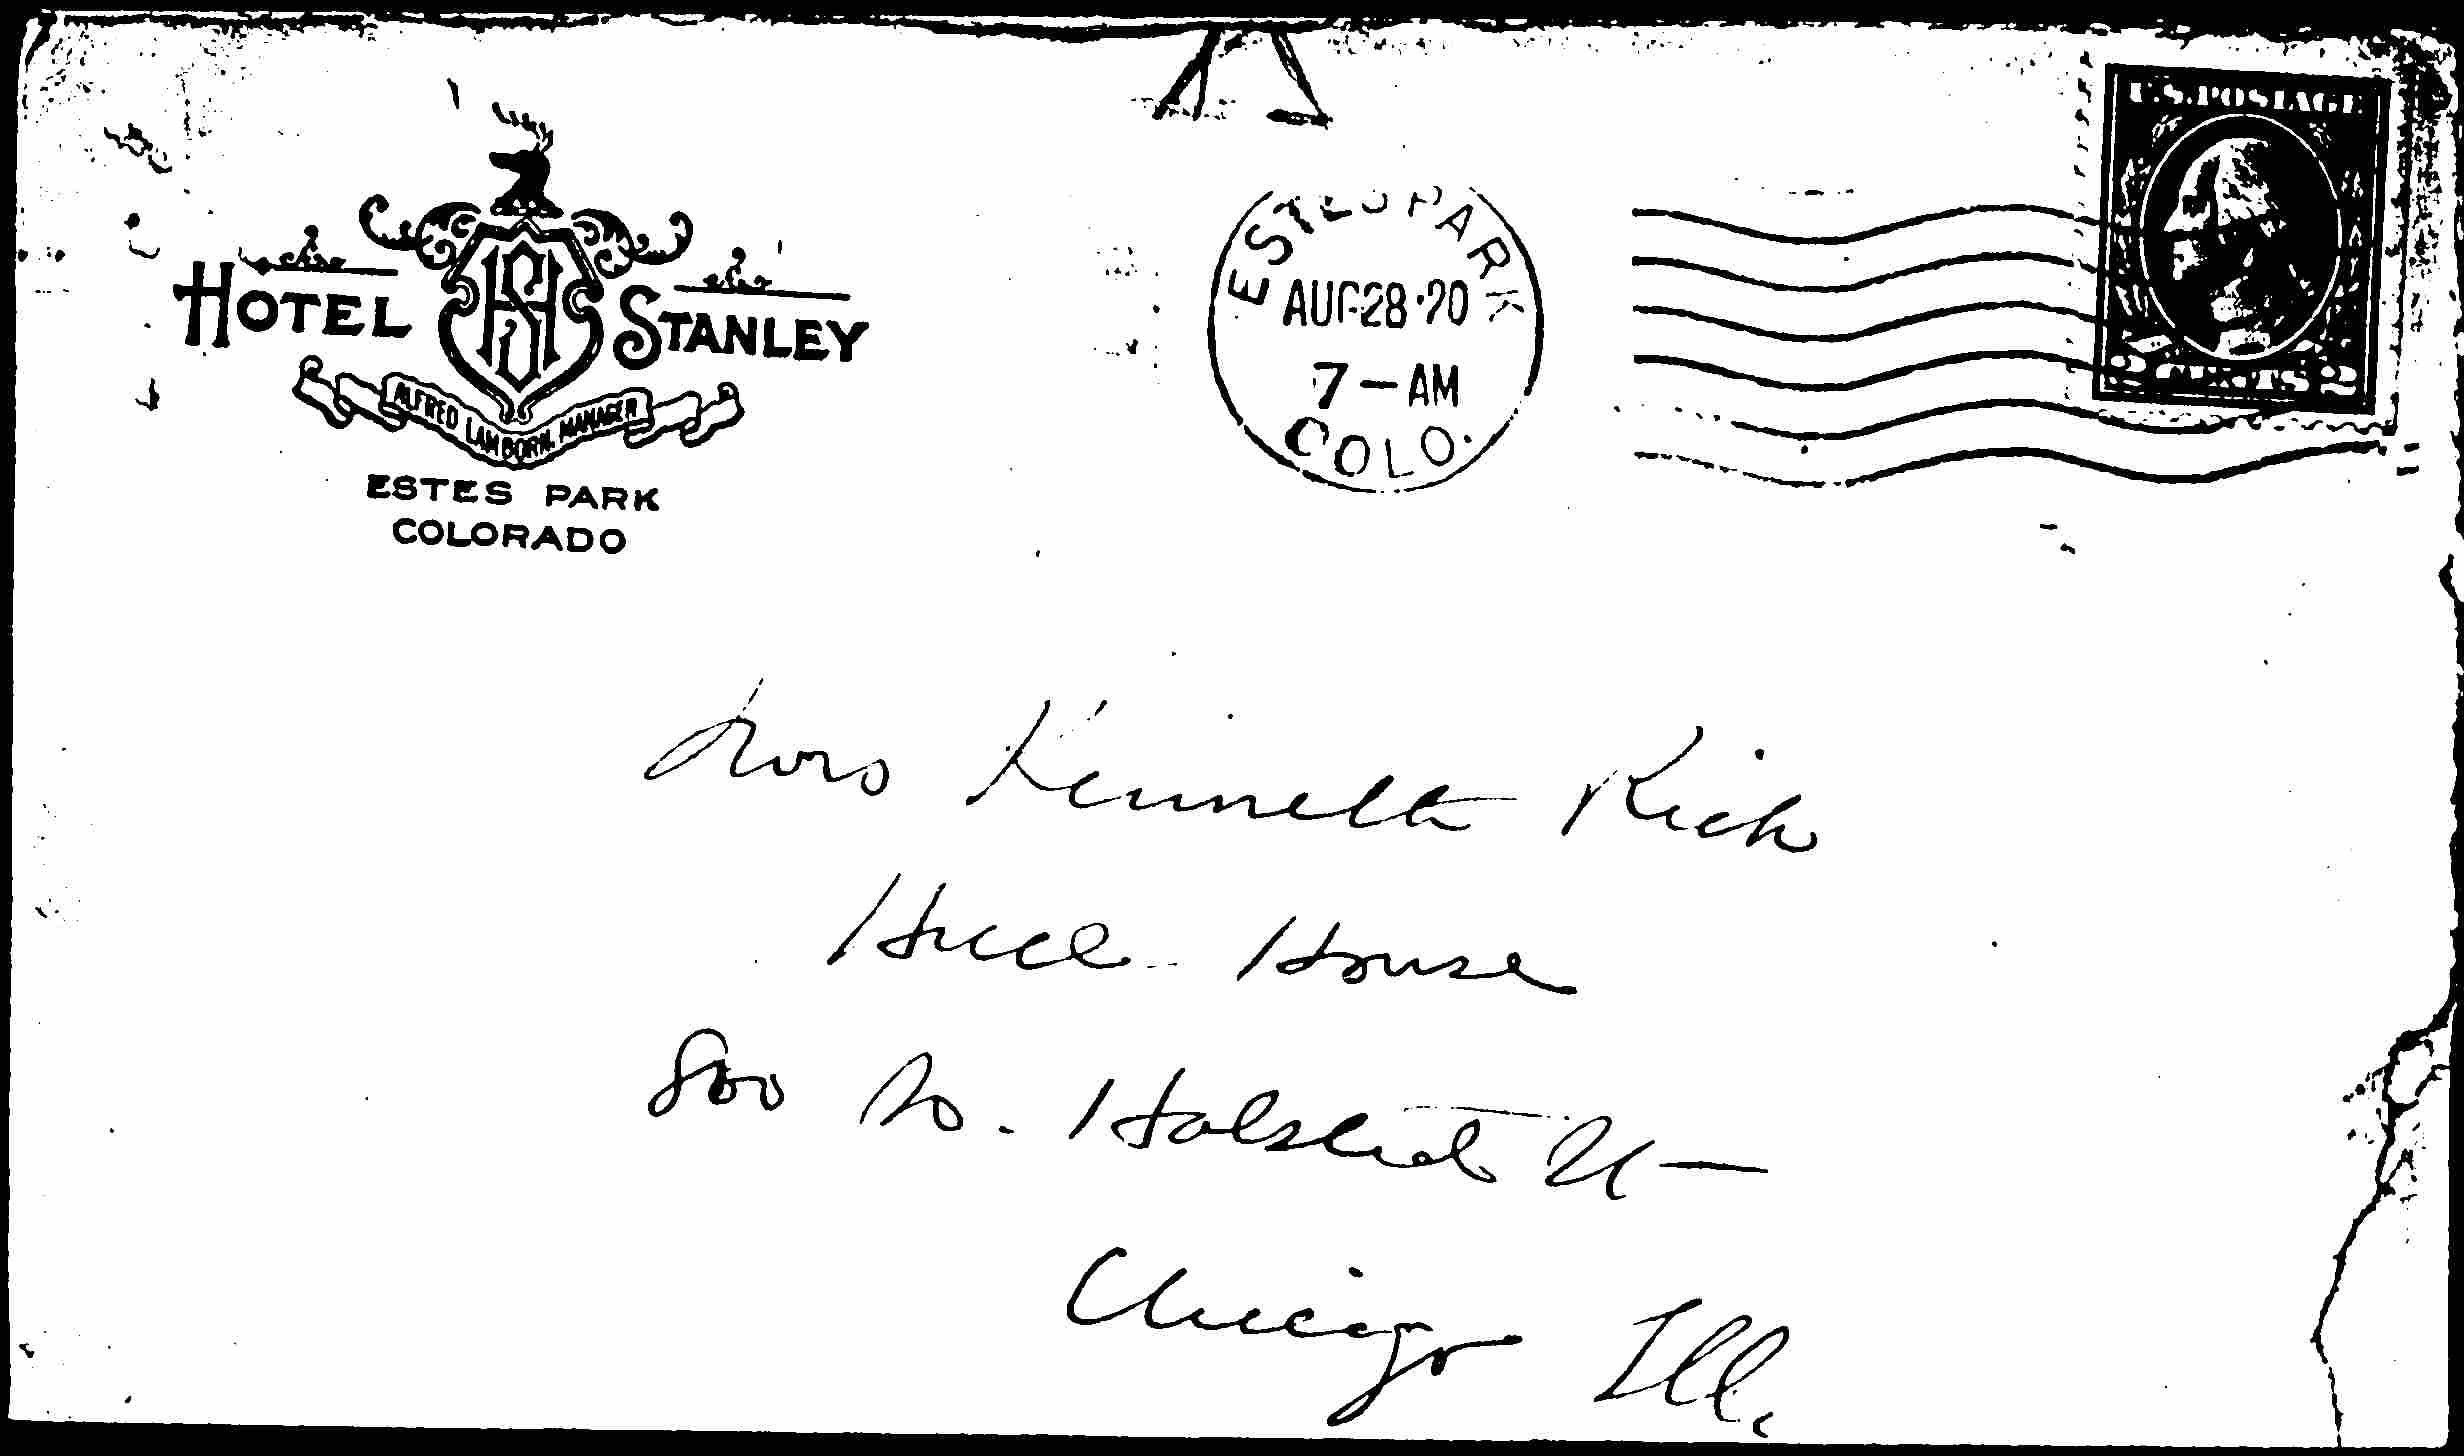 HOTEL STANLEY
ALFRED LAMBORN, MANAGER
ESTES PARK
COLORADO
ESTES PARK
AUG 28 '20
7 - AM
COLO.
U.S. POSTAGE
2 CENTS 2
Mrs Kenneth Rich
Hull House
800 So. Halsted St
Chicago Ill.